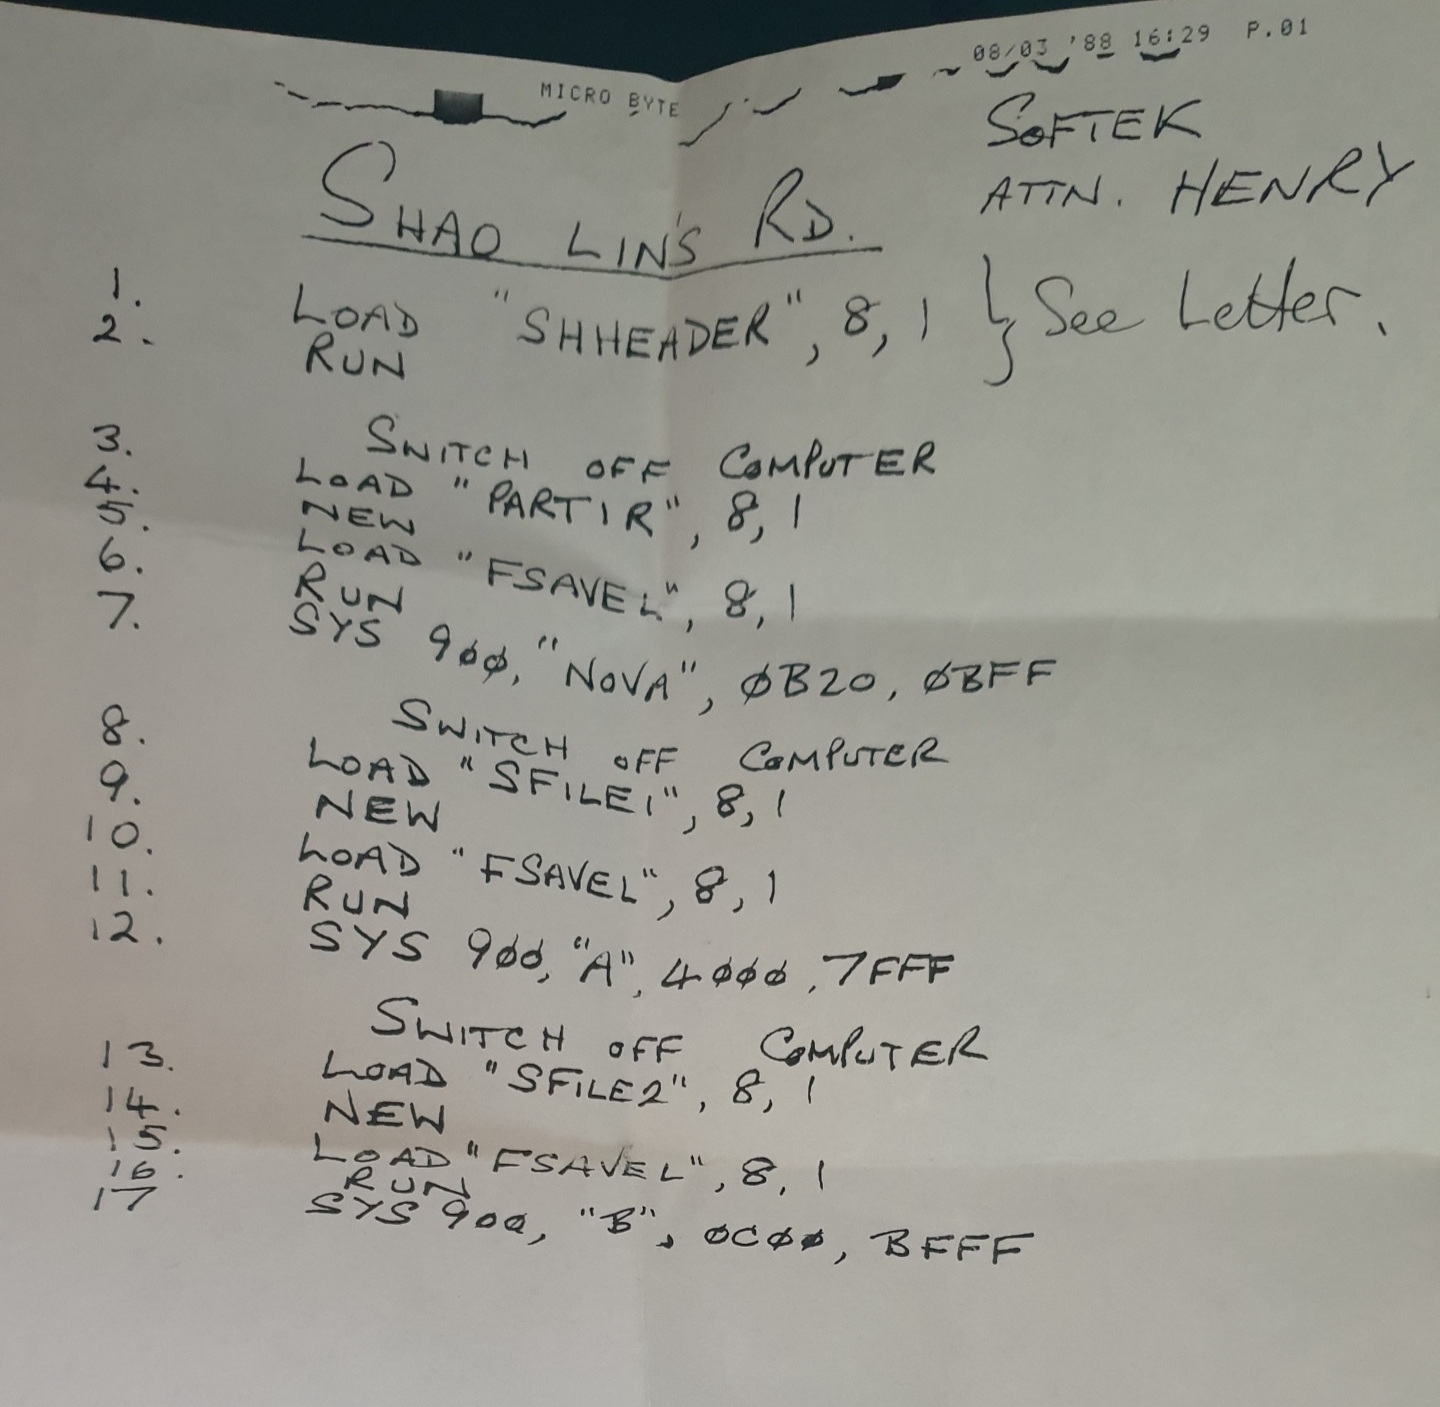 08/03 '88 16:29 P.01
MICRO BYTE
SOFTEK
ATTN. HENRY
SHAO LIN'S RD.
1. LOAD "SHHEADER", 8, 1 } See Letter.
2. RUN
SWITCH OFF COMPUTER
3. LOAD "PART1R", 8, 1
4. NEW
5. LOAD "FSAVEL", 8, 1
6. RUN
7. SYS 9øø, "NOVA", øB20, øBFF
SWITCH OFF COMPUTER
8. LOAD "SFILE1", 8, 1
9. NEW
10. LOAD "FSAVEL", 8, 1
11. RUN
12. SYS 9øø, "A", 4øøø, 7FFF
SWITCH OFF COMPUTER
13. LOAD "SFILE2", 8, 1
14. NEW
15. LOAD "FSAVEL", 8, 1
16. RUN
17 SYS 900, "B", øCøø, BFFF